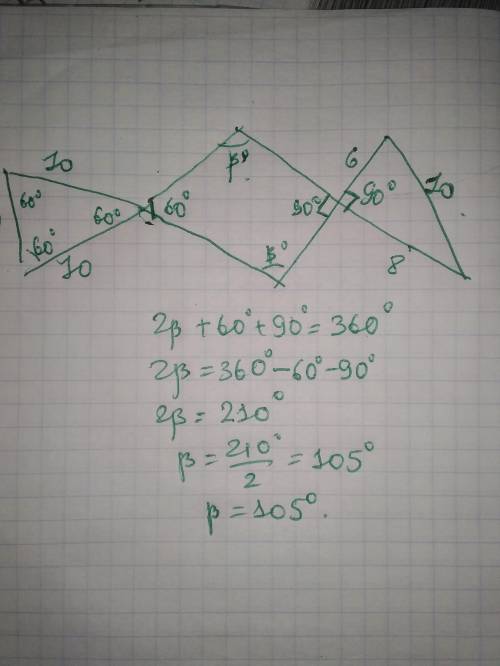 10
60°
60°
60°
10
60°
β°
β°
90°
90°
6
10
8
2β + 60° + 90° = 360°
2β = 360° - 60° - 90°
2β = 210°
β = 210°/2 = 105°
β = 105°.